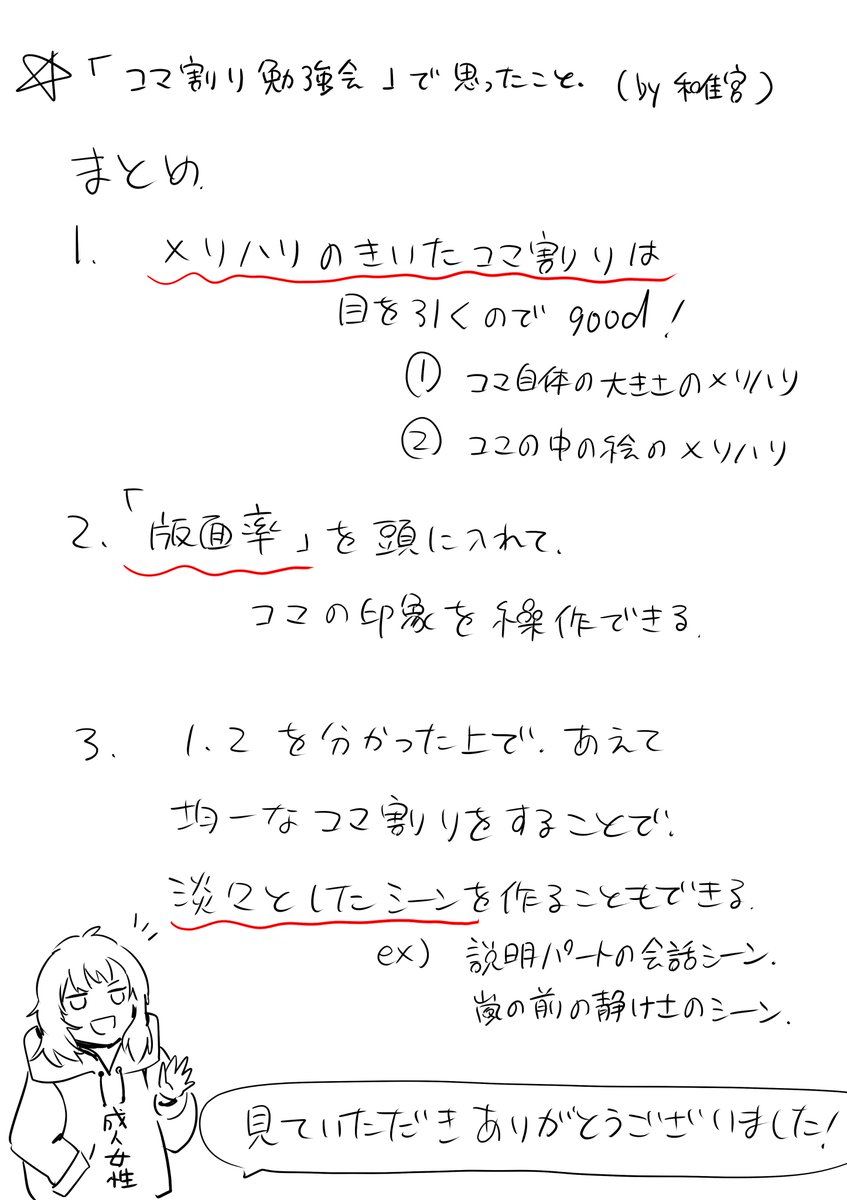 ☆「コマ割り勉強会」で思ったこと. (by 和隹宮)
まとめ.
1. メリハリのきいたコマ割りは
目を引くので good!
① コマ自体の大きさのメリハリ
② コマの中の絵のメリハリ
2. 「版面率」を頭に入れて、
コマの印象を操作できる.
3. 1.2 を分かった上で、あえて
均一なコマ割りをすることで、
淡々としたシーンを作ることもできる.
ex) 説明パートの会話シーン.
嵐の前の静けさのシーン.
成人女性
見ていただきありがとうございました!